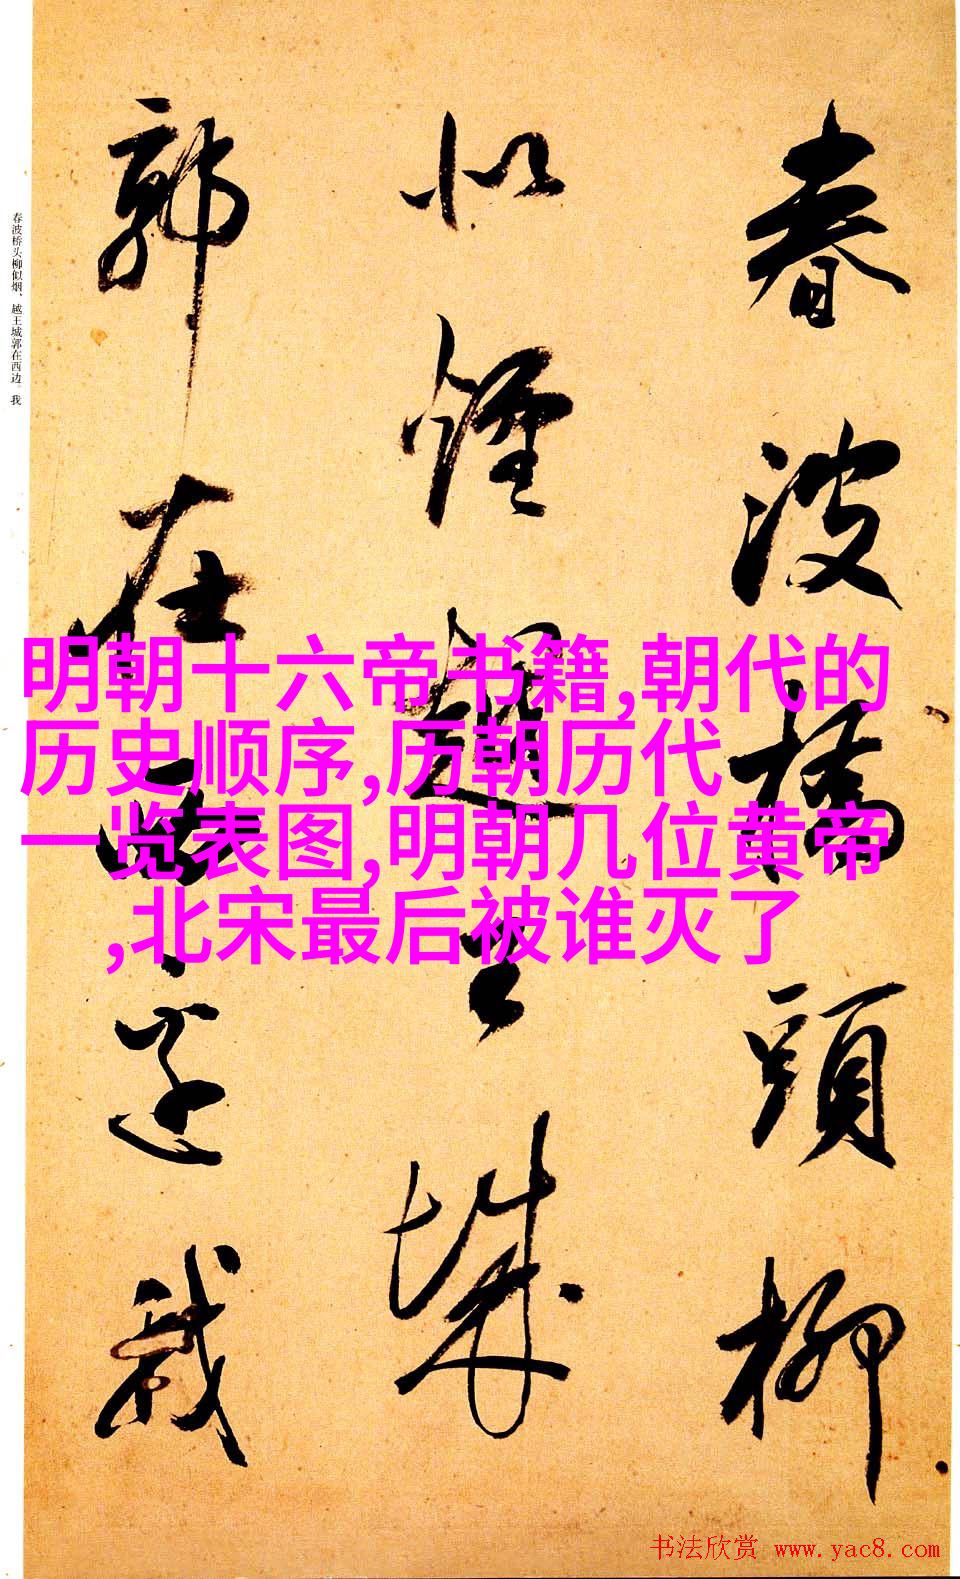 春波橋頭柳
似煙越王城
郭在西邊我
春波桥头柳似烟、越王城郭在西边。我
明朝十六帝书籍,朝代的
历史顺序,历朝历代
一览表图,明朝几位黄帝
,北宋最后被谁灭了
书法欣赏 www.yac8.com